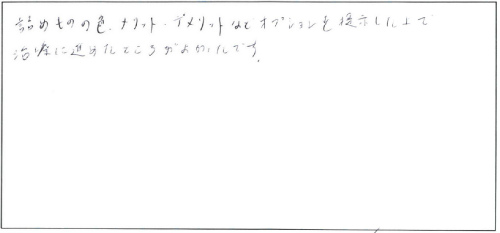 詰めものの色、メリット・デメリットなどオプションを提示した上で
治療に進めたところがよかったです。